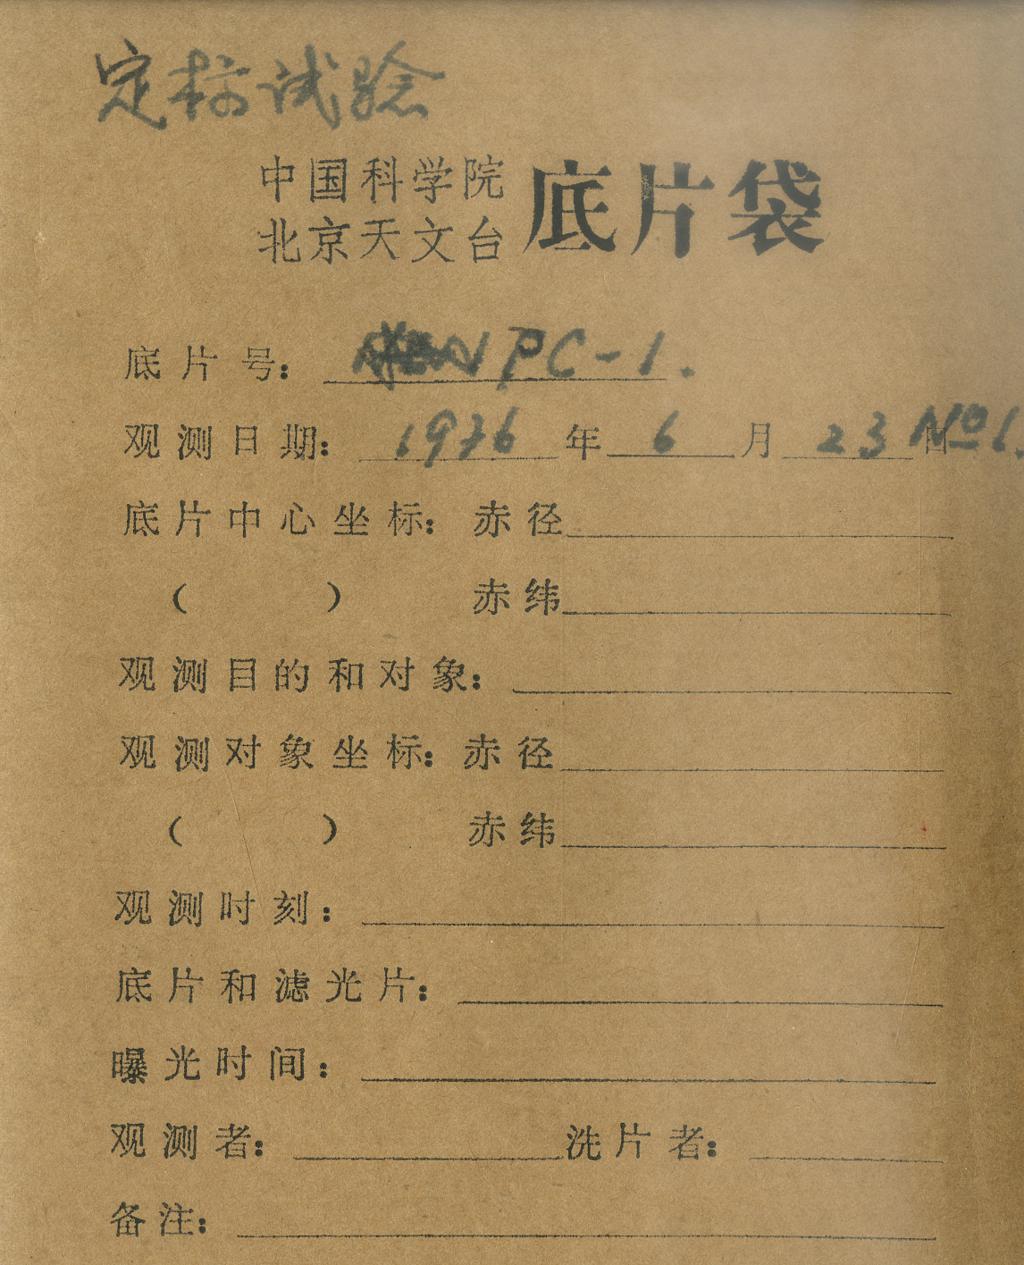 定标试验
中国科学院
北京天文台
底片袋
底片号： PC-1.
观测日期： 1976 年 6 月 23 日 No1.
底片中心坐标： 赤径
（ ） 赤纬
观测目的和对象：
观测对象坐标： 赤径
（ ） 赤纬
观测时刻：
底片和滤光片：
曝光时间：
观测者： 洗片者：
备注：